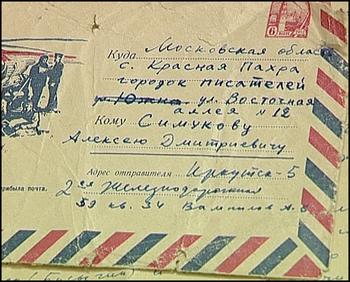 6
Куда Московская область
с. Красная Пахра
городок писателей
ул. Восточная
аллея № 12
Кому Симукову
Алексею Дмитриевичу
Адрес отправителя Иркутск-5
2ая Железнодорожная
59 кв. 34 Вампилов А.В.
прибыла почта.